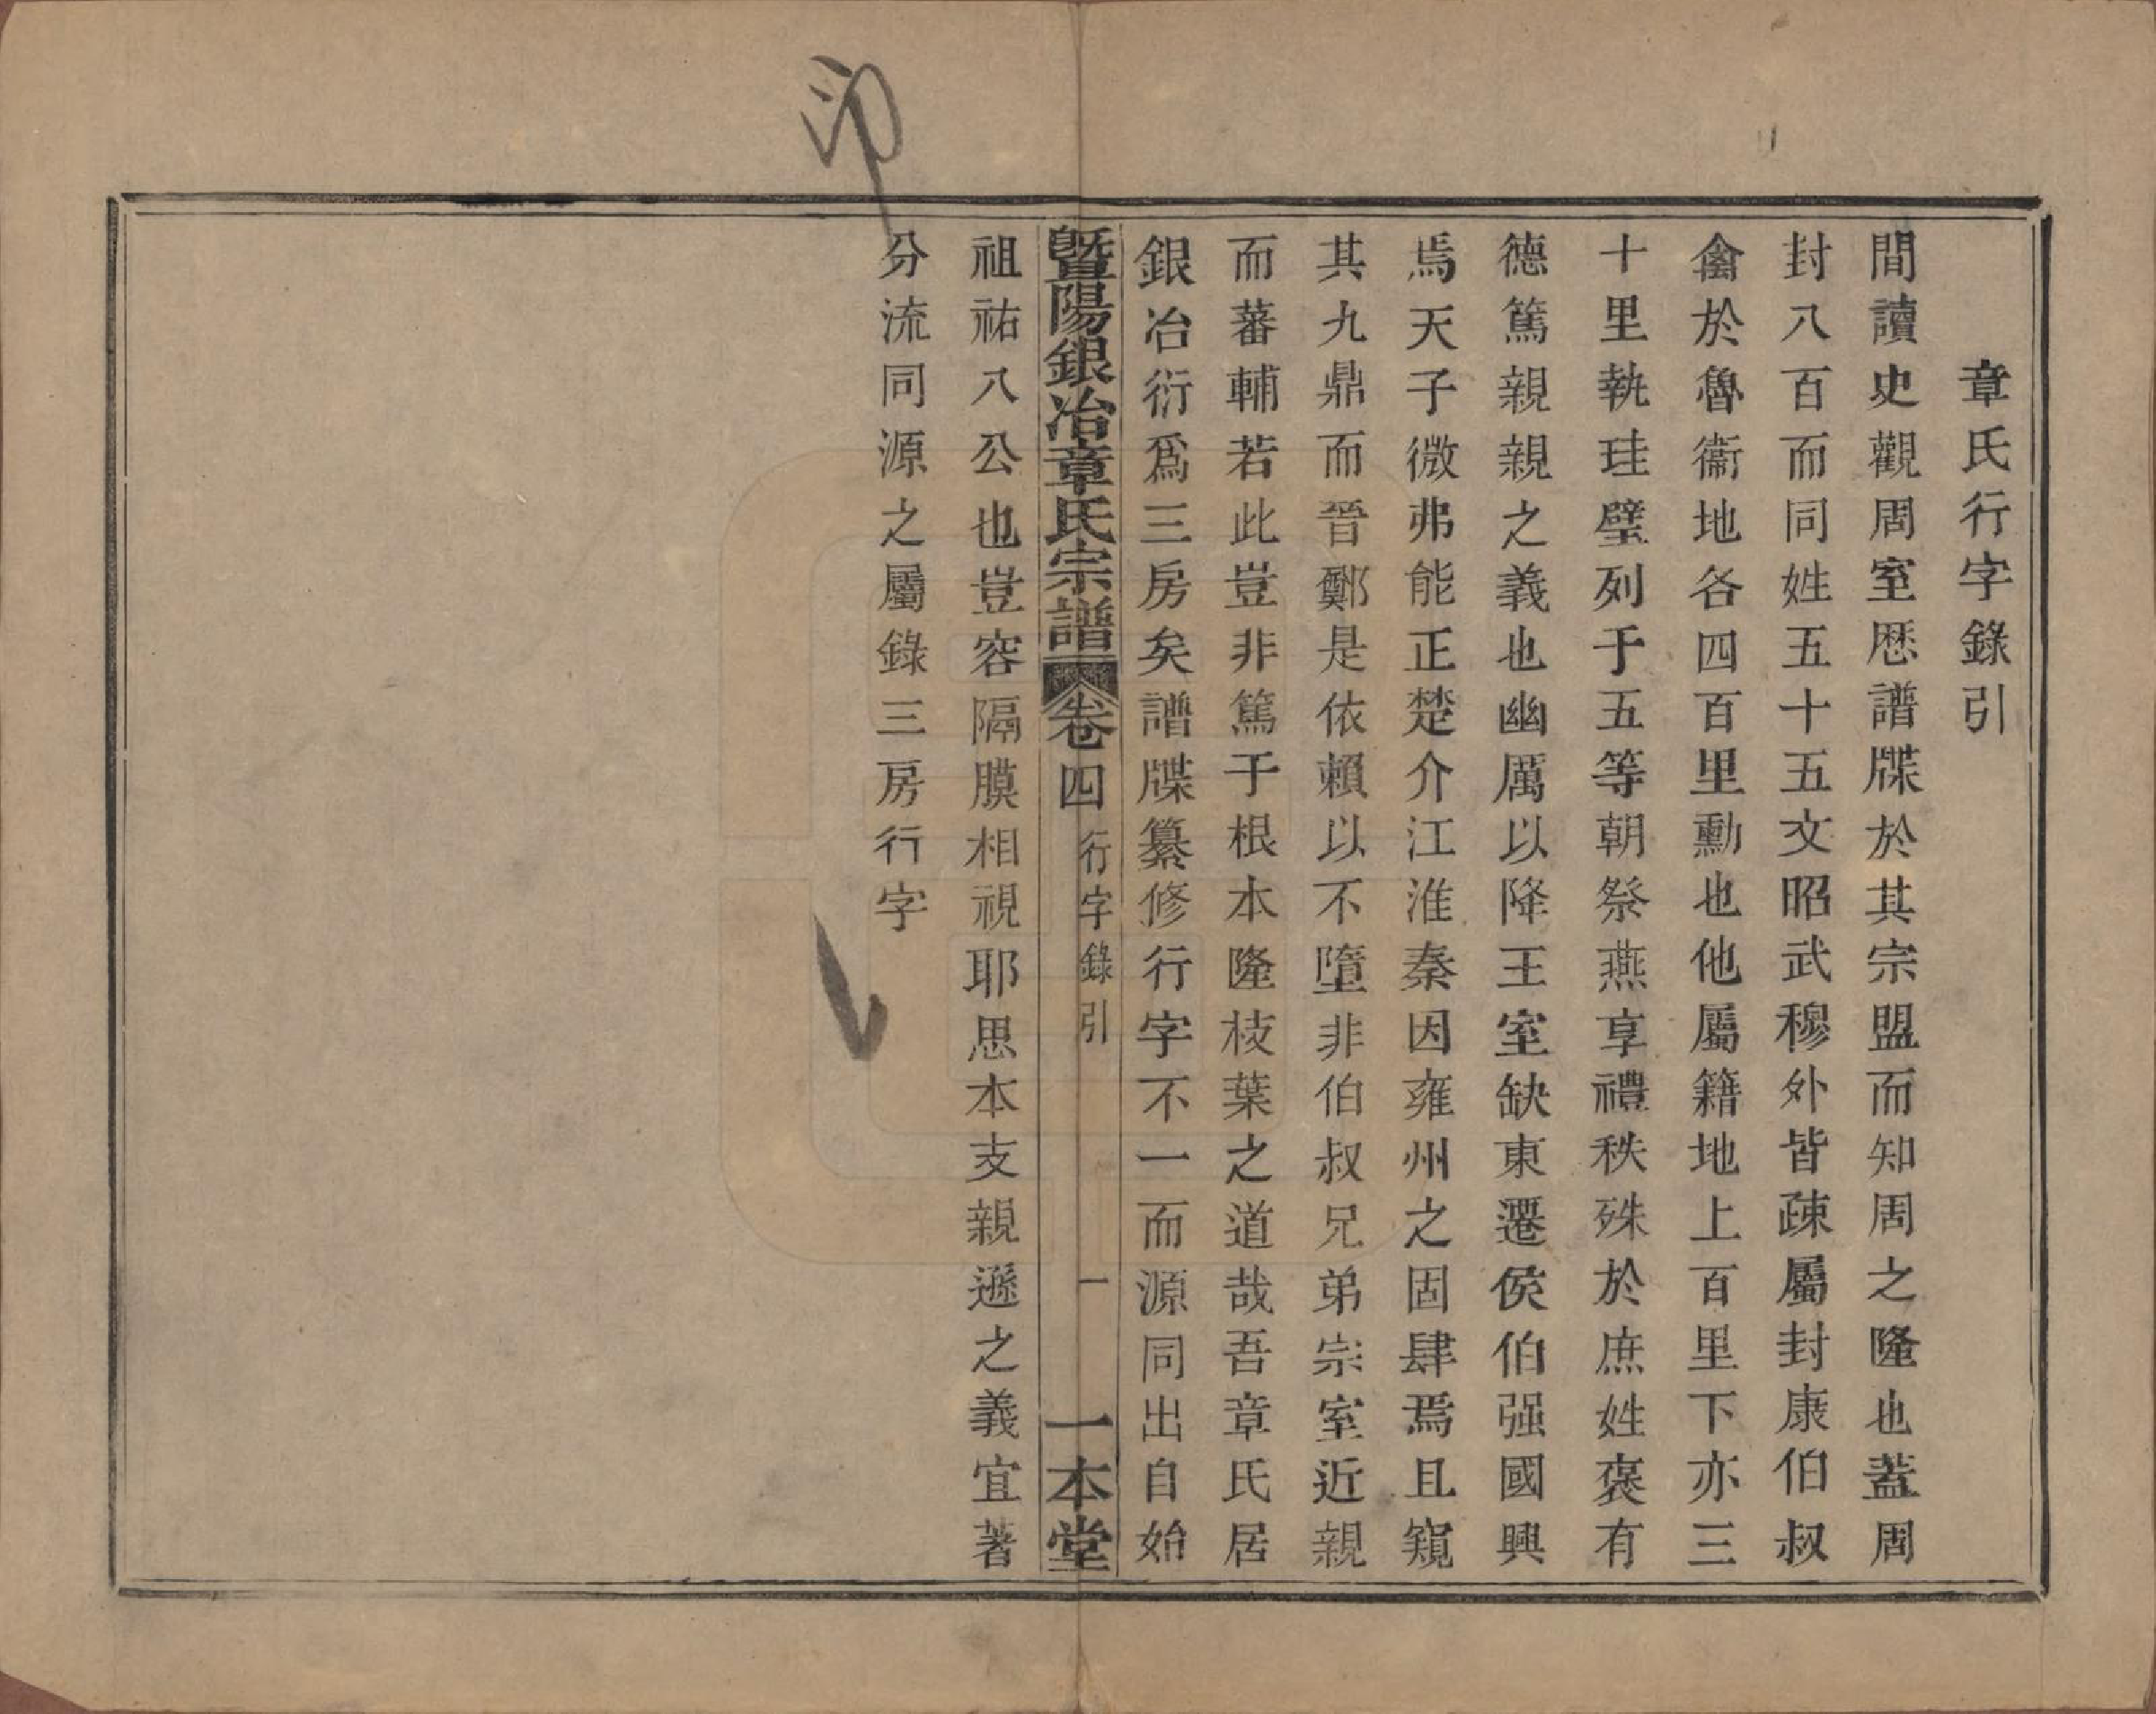 章氏行字錄引
間讀史觀周室厯譜牒於其宗盟而知周之隆也蓋周
封八百而同姓五十五文昭武穆外皆疎屬封康伯叔
禽於魯衞地各四百里勳也他屬籍地上百里下亦三
十里執珪璧列于五等朝祭燕享禮秩殊於庶姓褒有
德篤親親之義也幽厲以降王室缺東遷侯伯强國興
焉天子微弗能正楚介江淮秦因雍州之固肆焉且窺
其九鼎而晉鄭是依賴以不墮非伯叔兄弟宗室近親
而蕃輔若此豈非篤于根本隆枝葉之道哉吾章氏居
銀冶衍爲三房矣譜牒纂修行字不一而源同出自始
暨陽銀冶章氏宗譜 卷四 行字錄引 一 一本堂
祖祐八公也豈容隔膜相視耶思本支親遜之義宜著
分流同源之屬錄三房行字
印